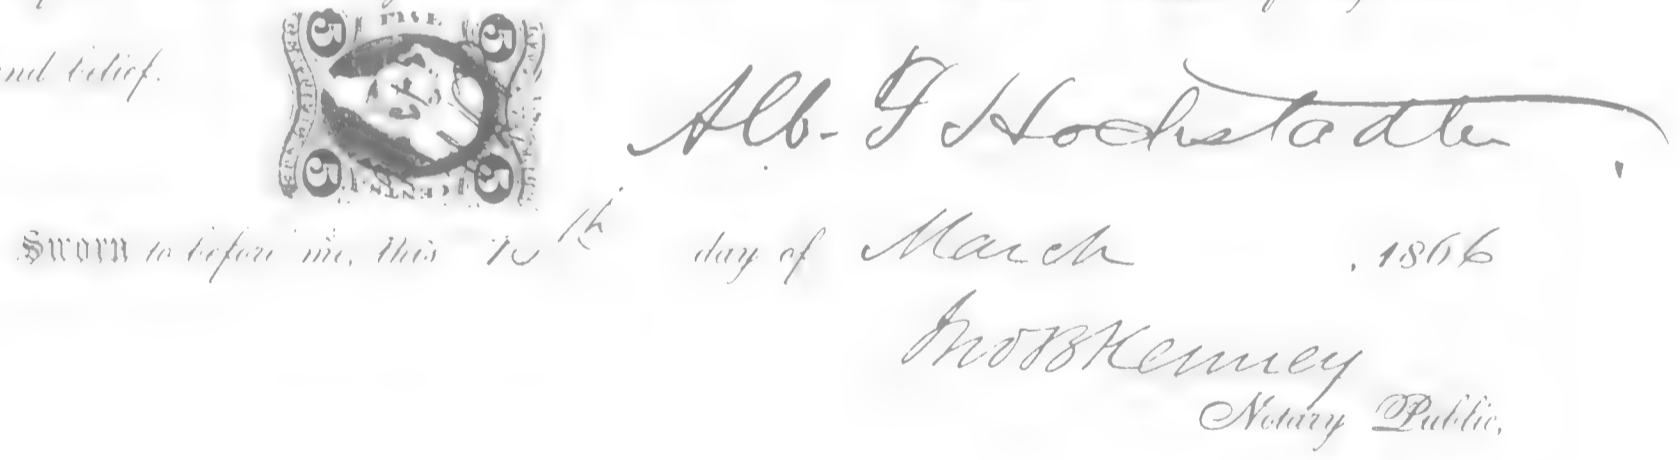 and belief.
FIVE
5 5
5 CENTS 5
Alb. F Hochstadter
Sworn to before me, this 10th day of March, 1866
Jno B Kenney
Notary Public,